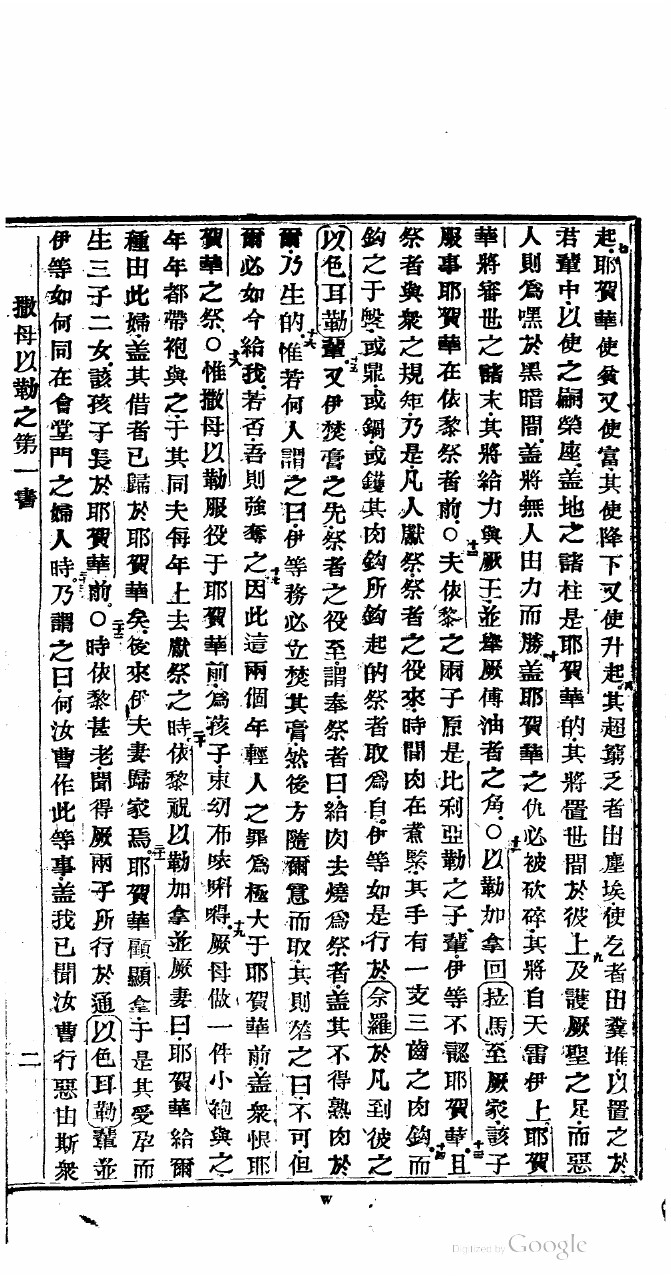 起耶賀華使貧又使富其使降下又使升起其超窮乏者出塵埃使乞者出糞堆以置之於
君輩中以使之嗣榮座盖地之諸柱是耶賀華的其將置世間於彼上及護厥聖之足而惡
人則為嘿於黑暗間盖將無人由力而勝盖耶賀華之仇必被砍碎其將自天雷伊上耶賀
華將審世之諸末其將給力與厥王並舉厥傅油者之角○以勒加拿回拉馬至厥家該子
服事耶賀華在依黎祭者前○夫依黎之兩子原是比利亞勒之子輩伊等不認耶賀華且
祭者與衆之規矩乃是凡人獻祭祭者之役來時間肉在煮緊其手有一支三齒之肉鈎而
鈎之于盤或鼎或鍋或鑊其肉鈎所鈎起的祭者取為自伊等如是行於佘羅於凡到彼之
以色耳勒輩又伊焚膏之先祭者之役至謂奉祭者曰給肉去燒為祭者盖其不得熟肉於
爾乃生的惟若何人謂之曰伊等務必立焚其膏然後方隨爾意而取其則答之曰不可但
爾必如今給我若否吾則強奪之因此這兩個年輕人之罪為極大于耶賀華前盖衆恨耶
賀華之祭○惟撒母以勒服役于耶賀華前為孩子束幼布𠹌唎得厥母做一件小袍與之
年年都帶袍與之于其同夫每年上去獻祭之時依黎祝以勒加拿並厥妻曰耶賀華給爾
種由此婦盖其借者已歸於耶賀華矣後來伊夫妻歸家焉耶賀華顧顯拿于是其受孕而
生三子二女該孩子長於耶賀華前○時依黎甚老聞得厥兩子所行於通以色耳勒輩並
伊等如何同在會堂門之婦人時乃謂之曰何汝曹作此等事盖我已聞汝曹行惡由斯衆
撒母以勒之第一書
二
W
Digitized by Google